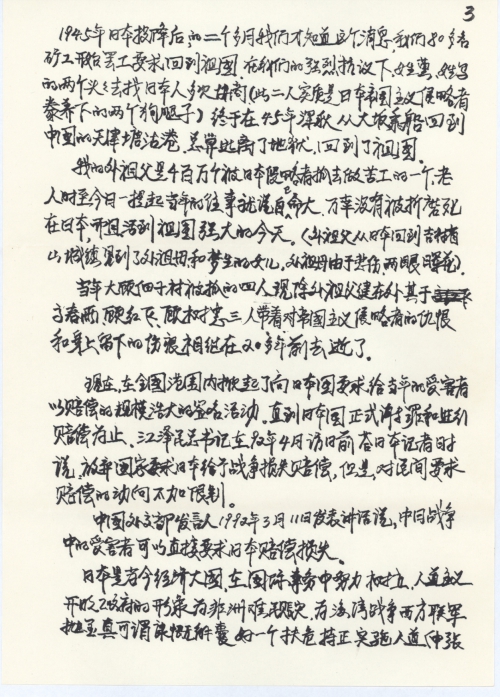 3
1945年日本投降后,的二个多月我们才知道这个消息,我们80多名
矿工形成罢工要求,回到祖国,在我们的强烈抗议下,姓 姓
的两个头头去找日本人多次 (此二人实质是日本帝国主义侵略者
豢养下的两个狗腿子)终于在45年深秋从大坂乘船回到
中国的天津塘沽港,总算逃离了地狱,回到了祖国。
我的外祖父是千百万个被日本侵略者抓去做苦工的一个,老
人时至今日一提起当年的往事就说自己命大,万幸没有被折磨死
在日本,并且活到祖国强大的今天。(外祖父从日本回到吉林省
山城镇见到了外祖母和 的女儿,外祖母由于悲伤,两眼 )
当年大 子村被抓的四人,现除外祖父健在外,其于
于春雨、顾红飞、顾树 三人带着对帝国主义侵略者的仇恨
和身上留下的伤痕相继在20多年前去逝了。
现在,在全国范围内掀起了向日本国要求给当年的受害者
以赔偿的规模浩大的签名活动,直到日本国正式谢罪和进行
赔偿为止、江泽民总书记在92年4月访日前答日本记者时
说,放弃国家要求日本给予战争损失赔偿,但是,对民间要求
赔偿的动向不加限制。
中国外交部发言人1992年3月11日发表讲话说,中日战争
中的受害者可以直接要求日本赔偿损失。
日本是当今经济大国,在国际事务中努力 人道主义
开明政府的形象为非洲难民 为海湾战争西方联军
真可谓慷慨解囊,好一个扶危持正实施人道(伸张